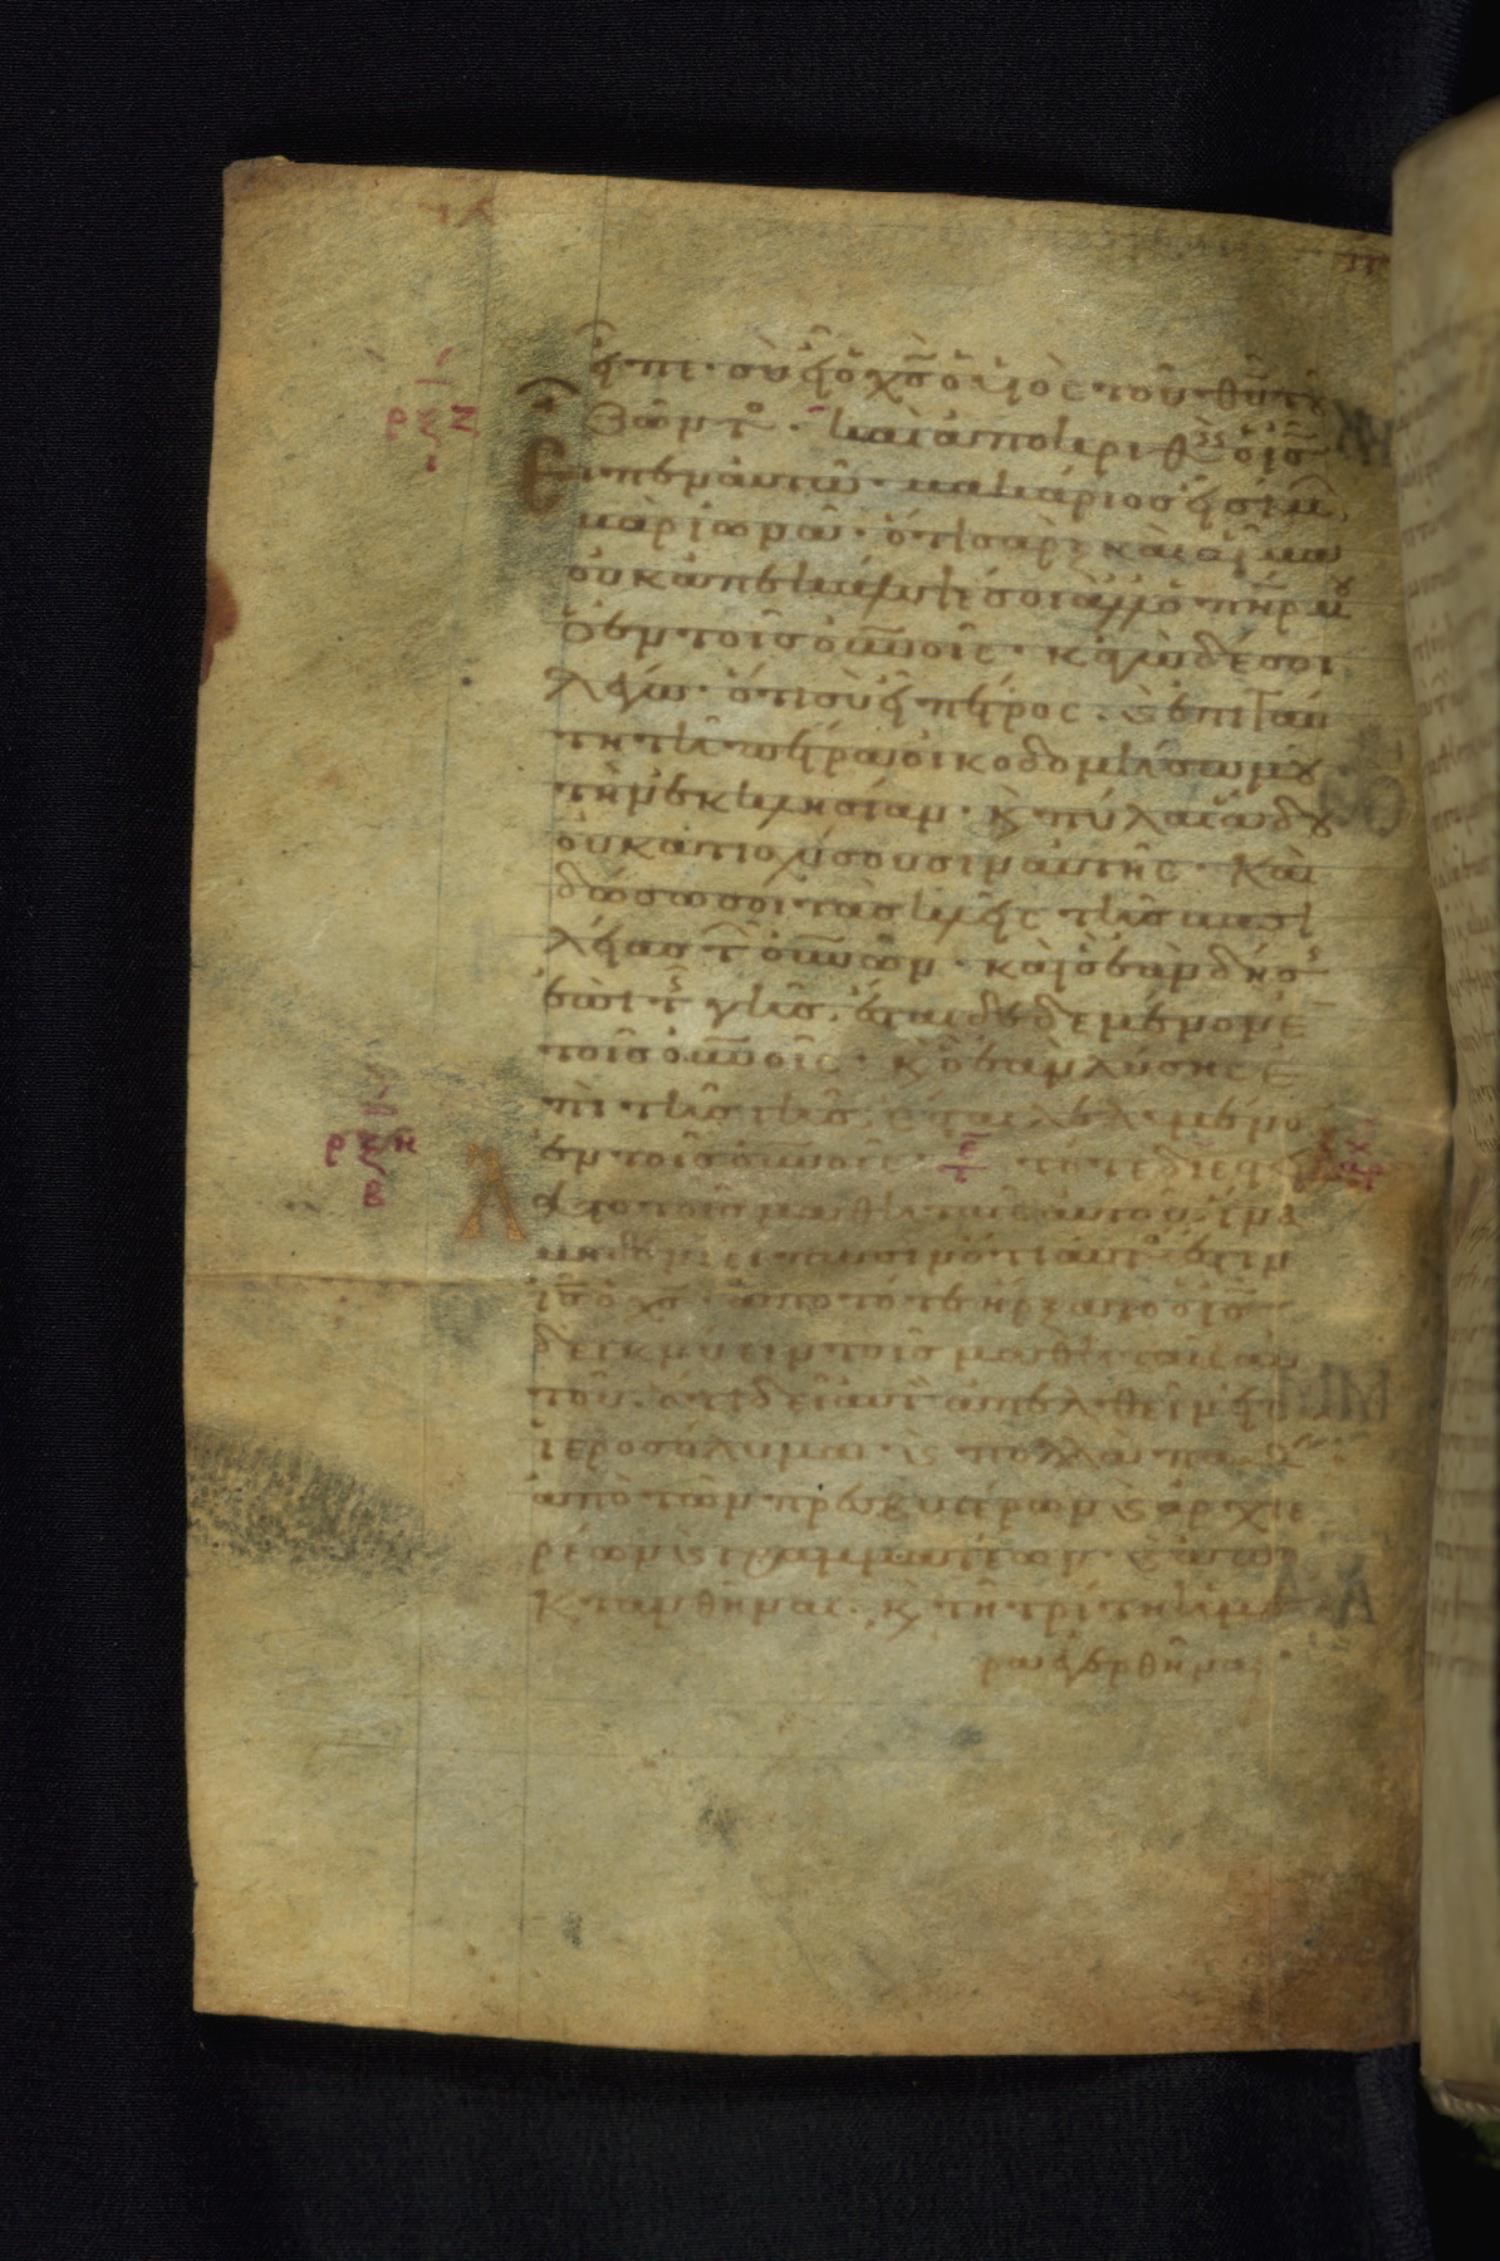 εἶπε· σὺ εἶ ὁ χ̅ς̅ ὁ υἱὸς τοῦ θ̅υ̅ τοῦ
ζῶντο· καὶ ἀποκριθεὶς ὁ ι̅ς̅
ρξζ
ι
Εἶπεν αὐτῶ· μακάριος εἶ σίμ
βὰρ ἰωνᾶ· ὅτι σὰρξ καὶ αἷμα
οὐκ ἀπεκάλυψέ σοι ἀλλ' ὁ π̅η̅ρ μου
ὁ ἐν τοῖς ο̅υ̅ν̅οις· κἀγὼ δέ σοι
λέγω· ὅτι σὺ εἶ πέτρος· ϗ ἐπὶ ταύ
τη τῆ πέτρα οἰκοδομήσω μου
τὴν ἐκκλησίαν· ϗ πύλαι ἅδου
οὐ κατισχύσουσιν αὐτῆς· Καὶ
δώσω σοι τὰς κλεῖς τῆς βασι
λείας τῶν ο̅υ̅ν̅ῶν· καὶ ὃ ἐὰν δήσ
ἐπὶ τῆς γῆς, ἔσται δεδεμένον ἐ
τοῖς ο̅υ̅ν̅οῖς· ϗ ὃ ἐὰν λύσης ἐ
πὶ τῆς γῆς, ἔσται λελυμένο
ἐν τοῖς ο̅υ̅ν̅οῖς· τότε διεστεί
ρξη
β
λατο τοῖς μαθηταῖς αὐτοῦ· ἵνα
μηδενὶ εἴπωσιν ὅτι αὐτός ἐστιν
ι̅ς̅ ὁ χ̅ς̅· ἀπὸ τότε ἤρξατο ὁ ι̅ς̅
δεικνύειν τοῖς μαθηταῖς αὐ
τοῦ· ὅτι δεῖ αὐτὸν ἀπελθεῖν εἰς
ἱεροσόλυμα· ϗ πολλὰ παθεῖν
ἀπὸ τῶν πρεσβυτέρων ϗ ἀρχιε
ρέων ϗ γραμματέων· ϗ ἀπο
κτανθῆναι· ϗ τῆ τρίτη ἡμέ
ρα ἐγερθῆναι·